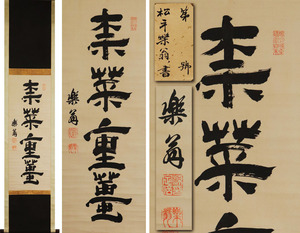 柰菜重薑
樂翁
柰菜重薑
樂翁
第 號
松平樂翁書
樂翁
柰菜重